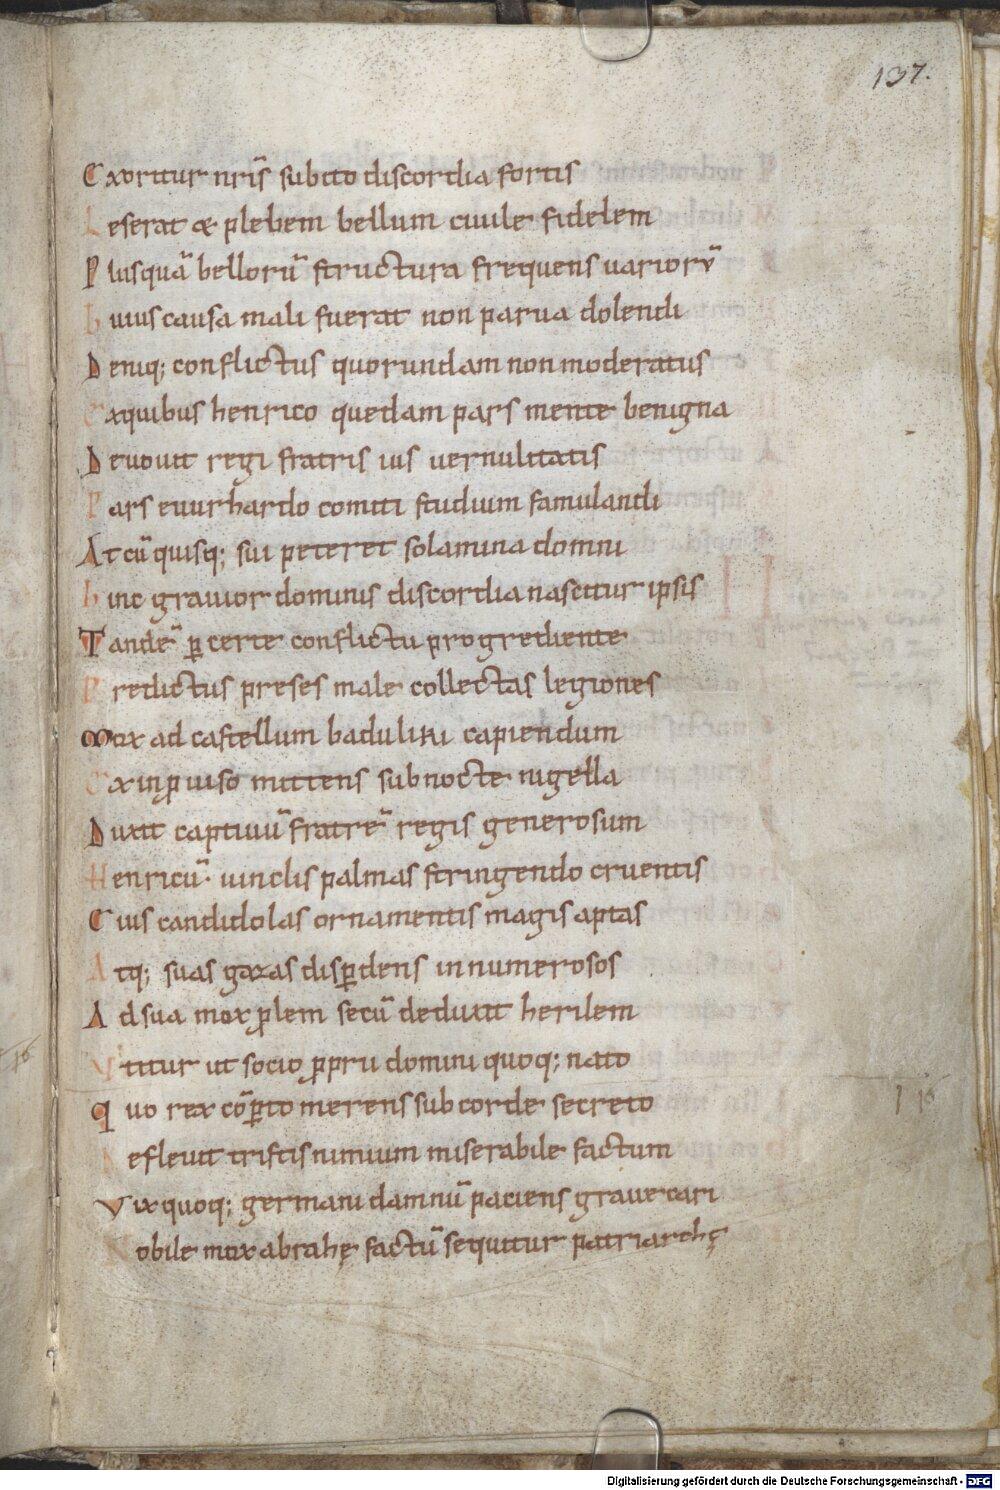 137.
Exoritur nr̄is subito discordia fortis
Leserat & plebem bellum ciuile fidelem
Plusquā bellorū structura frequens uariorū
huius causa mali fuerat non parua dolendi
Deniq; conflictus quorundam non moderatus
Exquibus henrico quedam pars mente benigna
Deuouit regi fratris ius uernulitatis
Pars euurhardo comiti studium famulandi
At cū quisq; sui peteret solamina domni
hinc grauior dominis discordia nascitur ipsis
Tandē ꝑ certe conflictu progrediente
Predictus preses male collectas legiones
Mox ad castellum baduliki capiendum
Ex inꝓuiso mittens sub nocte nigella
Duxit captiuū fratrē regis generosum
Henricū· uinclis palmas stringendo cruentis
Eius candidolas ornamentis magis aptas
Atq; suas gazas disꝑdens innumerosos
Ad sua mox ꝓlem secū deduxit herilem
Vtitur ut socio ꝓprii domini quoq; nato
Quo rex cōꝑto merens sub corde secreto
Defleuit tristis nimium miserabile factum
Vix quoq; germani damnū paciens graue cari
Nobile mox abrahę factū sequitur patriarchę
Digitalisierung gefördert durch die Deutsche Forschungsgemeinschaft - DFG